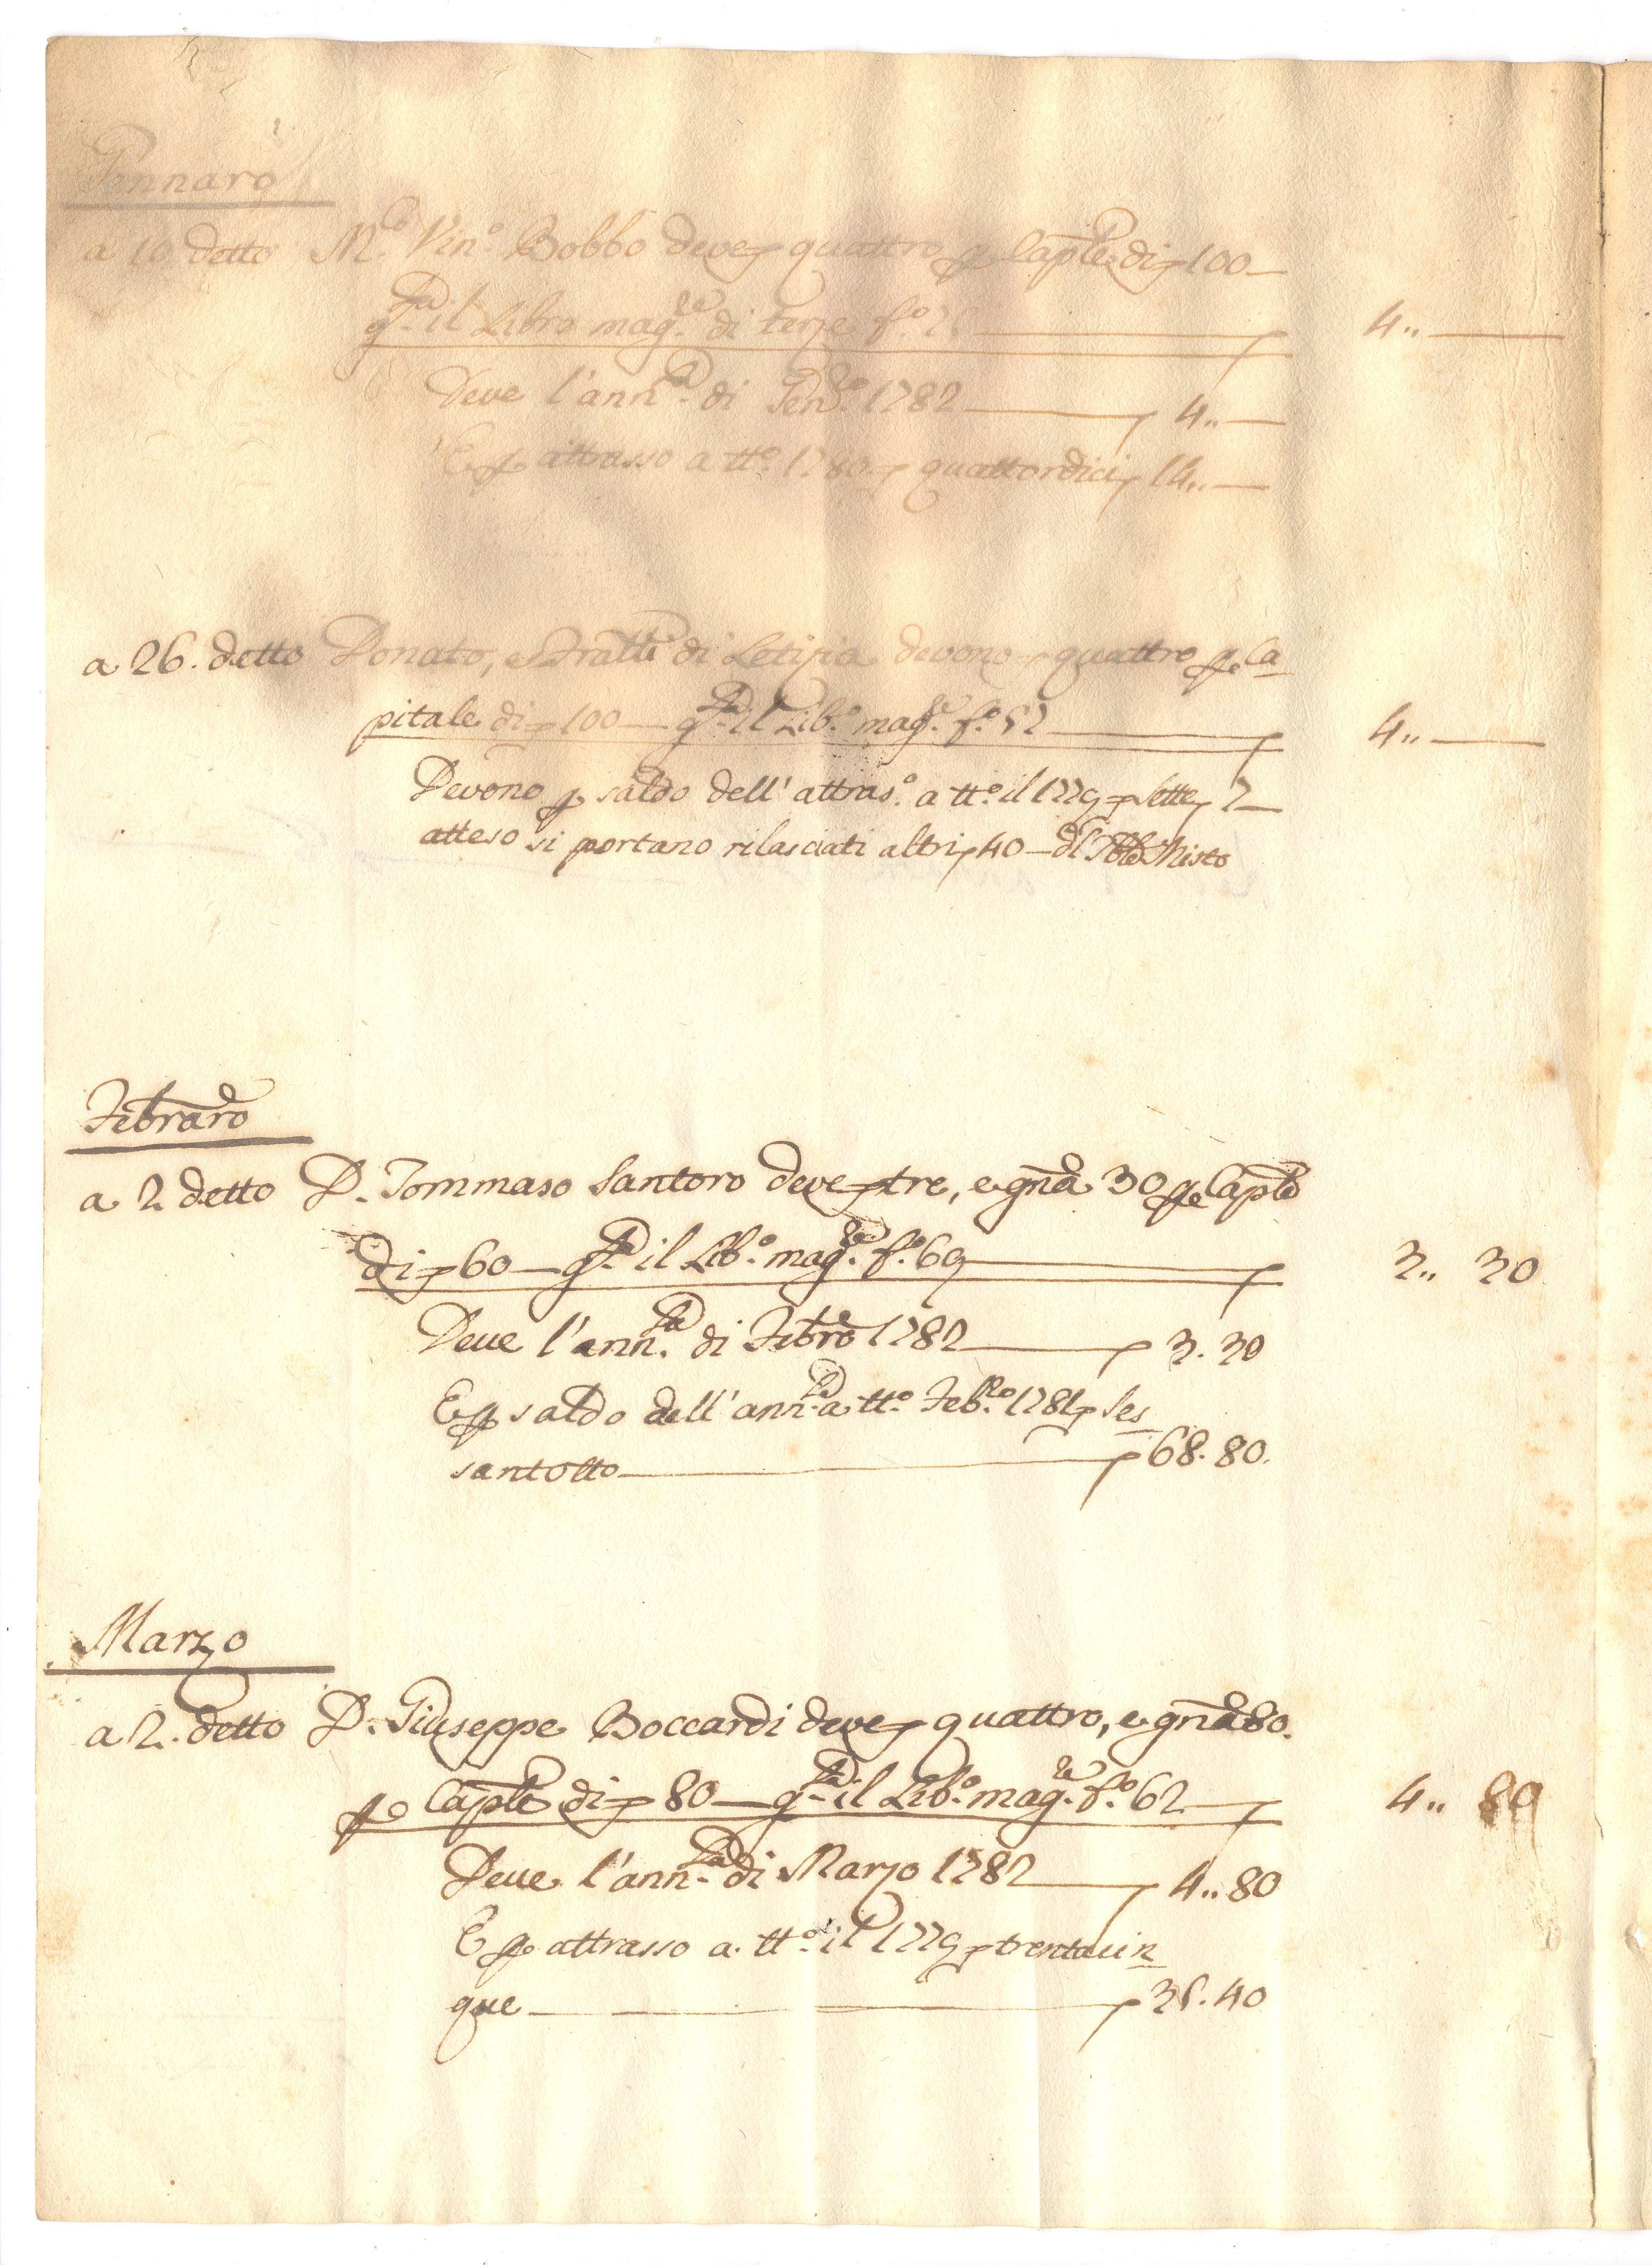 Gennaro
a 10 detto M.co Vin.o Bobbo deve quattro p Cap.le di 100 —
q.ta il Libro mag.re di terze f.o 4.. —
Deve l'ann.ta di Gen.ro 1782 — 4.. —
E p attrasso a tt.o 1780 quattordici 14.. —
a 26. detto Donato, e Fratte di Letizia devono quattro p Ca
pitale di 100 — q.ta il Lib.o mag.re f.o 52 — 4.. —
Devono p saldo dell' attras.o a tt.o il 1779 sette 7 —
atteso si portano rilasciati altri 40 —
Febraro
a 2. detto D. Tommaso Santoro deve tre, e gna 30 p Caple
di 60 — q.ta il Lib.o mag.re f.o 69 — 3.. 30
Deve l'ann.ta di Febro 1782 — 3. 30
E p saldo dell' ann.ta a tt.o Feb.ro 1781 ses
santotto — 68. 80.
Marzo
a 2. detto D. Giuseppe Boccardi deve quattro, e gna 80.
p Caple di 80 — q.ta il Lib.o mag.re f.o 62 — 4.. 80
Deve l'ann.ta di Marzo 1782 — 4.. 80
E p attrasso a tt.o il 1779 trentacin
que — 35. 40